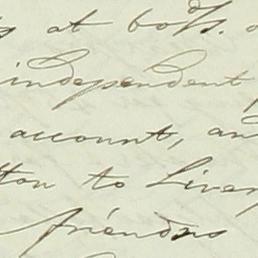 at both.
independent
account, and
tton to Liver
friends